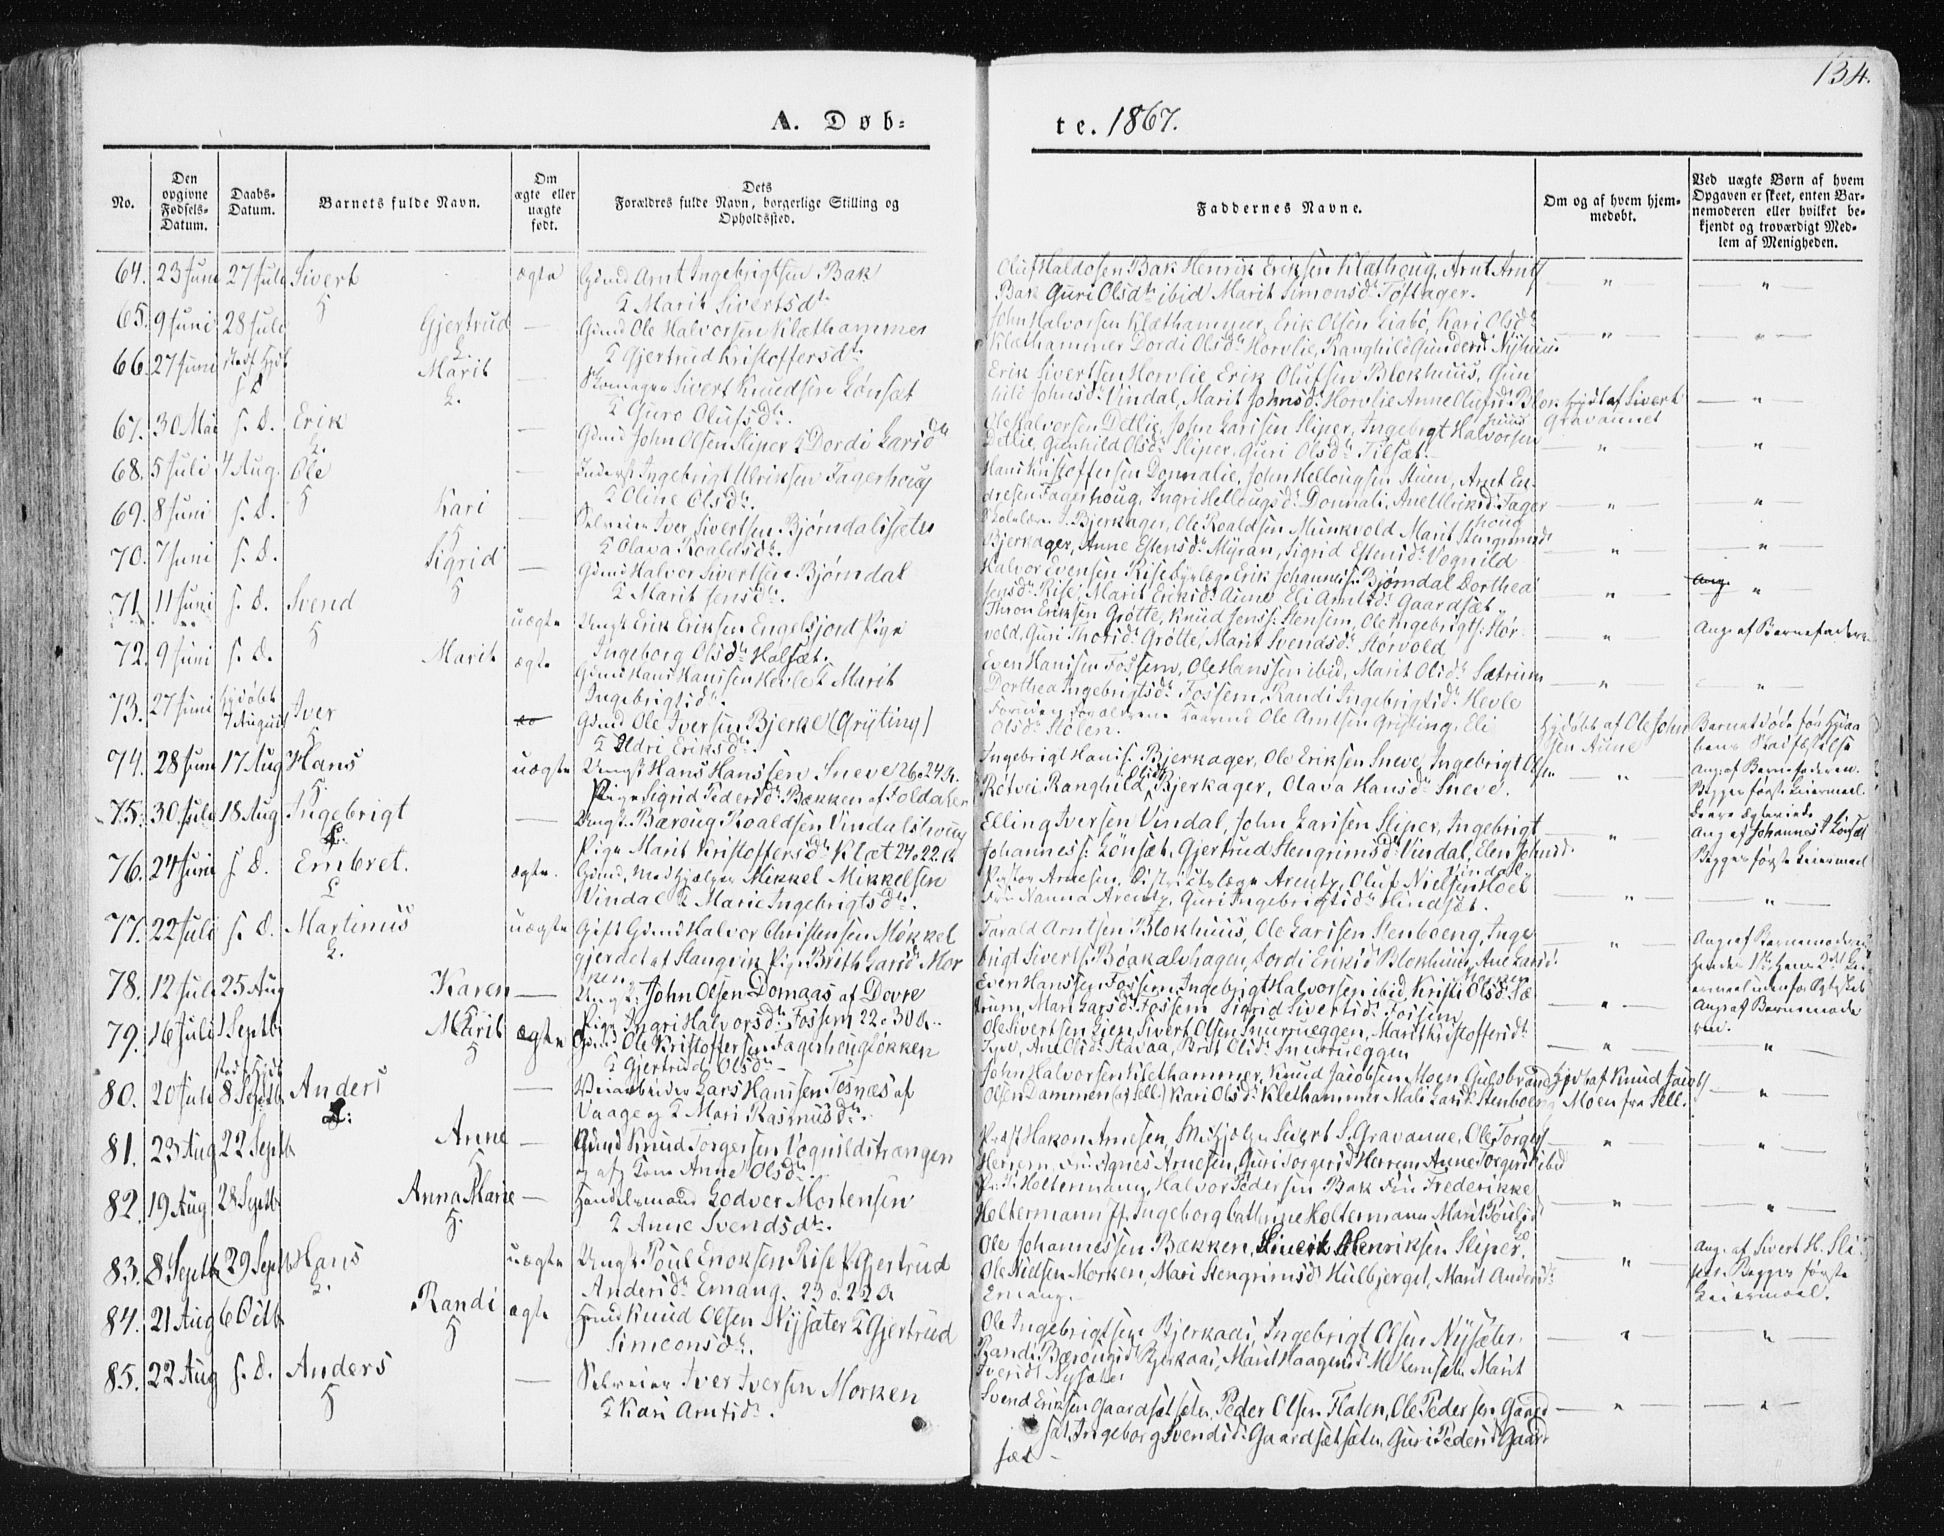 134.
A. Døb-
te. 1867.
No.
Den opgivne Fødsels-Datum.
Daabs-Datum.
Barnets fulde Navn.
Om ægte eller uægte født.
Dets
Forældres fulde Navn, borgerlige Stilling og
Opholdssted.
Faddernes Navne.
Om og af hvem hjem-
medøbt.
Ved uægte Børn af hvem
Opgaven er skeet, enten Bar-
nemoderen eller hvilket be-
kjendt og troværdigt Med-
lem af Menigheden.
64. 23 Juni 27 Juli Sivert ægte Gdmd Arnt Ingebrigtsen Bak
& Marit Sivertsdt.
Oluf Haldosen Bak Henrik Eriksen Klæthoug, Arnt Arnts
Bak Guri Olsdt ibid Marit Simonsdt Toftager.
65. 9 Juni 28 Juli Gjertrud — Gdmd Ole Halvorsen Klæthammer
& Gjertrud Kristoffersdt.
John Halvorsen Klæthammer, Erik Olsen Liabø, Kari Olsdt
Klæthammer Dordi Olsdt Horvlie, Ranghild Gundersd Nyhuus
66. 27 Juni Marit — Skomager Sivert Knudsen Lønsæt
& Guro Olufsdt.
Erik Sivertsen Horvlie Erik Olufsen Blokhuus, Gun
hild Johnsdt Vindal, Marit Johnsdt Horvlie Anne Olufsd Blok
huus
Hjdt af Sivert
Gravaunet
67. 30 Mai s. D. Erik — Gdmd John Olsen Sliper & Dordi Larsdt
Ole Halvorsen Detlie, John Larssen Sliper, Ingebrigt Halvorsen
Detlie, Gunhild Olsdt Sliper, Guri Olsdt Tilsæt.
68. 5 Juli 4 Aug. Ole — Inderst Ingebrigt Ulriksen Fagerhoug
& Oline Olsdt.
Hans Kristoffersen Donnalie, John Hellougsen Stuen, Arnt En-
dresen Fagerhoug, Ingri Hellougsdt Donnali, Ane Ulriksd. Fager
houg
69. 8 Juni s. D. Kari — Selveier Iver Sivertsen Bjørndalssæter
& Olava Roaldsdt.
Bjerkager, Ole Roaldsen Munkvold Marit Stengrimsdt
Bjerkager, Anne Estensdt Myran, Sigrid Estensdt Vognild
70. 7 Juni s. D. Sigrid — Gdmd Halvor Sivertsen Bjørndal
& Marit Jensdt.
Halvor Evensen Rise Erik Johanness. Bjørndal Dorthea
Jensdt Rise, Marit Eriksdt Aune Eli Arntsdt Gaardsæt
71. 11 Juni s. D. Svend uægte Ungk Erik Eriksen Engelsjord Pige
Ingeborg Olsdt Halsæt.
Thron Eriksen Grøtte, Knud Jenss: Stensem, Ole Ingebrigts: Hør-
vold, Guri Thorsdt Grøtte, Marit Svendsdt Hørvold
Ang. af Barnefaderen
72. 9 Juni s. D. Marit ægte Gdmd Hans Hanssen Hevle & Marit
Ingebrigtsdt.
Even Hanssen Fossem, Ole Hanssen ibid, Marit Olsdt Sætrum
Dorthea Ingebrigtsdt Fossem, Randi Ingebrigtsdt Hevle
73. 27 Juni hjdøbt 7 August Iver Gdmd Ole Iversen Bjerke (Gryting)
& Eldri Eriksdt.
Foruden Forældrene Ole Arntsen Gryting, Eli
Olsdt Stølen.
Hjdøbt af Ole John
sen Aune
Barnet døde før Hjdaa
bens Stadfæstelse
74. 28 Juni 17 Aug Hans uægte Ungk Hans Hanssen Sneve 26 & 24 A.
Pige Sigrid Pedersdt Bækken af Soldater
Ingebrigt Hanss. Bjerkager, Ole Eriksen Sneve, Ingebrigt Olsen
Røtvei, Ranghild Olsdt Bjerkager, Olava Hansdt Sneve.
Ang. af Barnefaderen.
Begges første Leiermaal.
75. 30 Juli 18 Aug Ingebrigt — Ungk. Baaroug Roaldsen Vindalshoug
Pige Marit Kristoffersdt Klæt 24 & 22 A
Elling Iversen Vindal, John Larssen Sliper, Ingebrigt
Johanness: Lønsæt, Gjertrud Stengrimsdt Vindal, Elen Johnsd.
Vindal
Ang af Johannes I. Lønsæt
Begges første Leiermaal
76. 24 Juni s. D. Embret. ægte. Gdmd, Medhjælper Mikkel Mikkelsen
Vindal & Marie Ingebrigtsdt.
Pastor Arnesen, Districtslæge Arentz, Oluf Nielsen Hoel
Fru Nanna Arentz, Guri Ingebrigtsdt Hindsæt.
77. 22 Juli s. D. Martinus uægte Gift Gdmd Halvor Christensen Møkkel
gjerdet af Stangvik Pige Brith Larsd Mor
ken
Tarald Arntsen Blokhuus, Ole Larssen Stenboeng, Inge
brigt Siverts: Bøakalvhagen, Dordi Eriksd Blokhuus, Ane Larsd.
Morken
Ang. af Barnemoderen
78. 12 Juli 25 Aug Karen — Ungk: John Olsen Domaas af Dovre
Pige Ingri Halvorsdt Fossem 22 & 30 A.
Even Hanssen Fossem, Ingebrigt Halvorsen ibid, Kristi Olsdt Sæ
trum, Mari Larsdt Fossem Sigrid Sivertsdt Fossem
Ang. af Barnemode
ren.
79. 16 Juli 1 Septb Marit ægte Gdmd Ole Kristoffersen Fagerhougløkken
& Gjertrud Olsdt
Ole Sivertsen Lien Sivert Olsen Snurrueggen, Marit Kristoffersdt
Ane Olsdt Stavaa, Brit Olsdt Snurrueggen
80. 20 Juli 8 Septb Anders — Veiarbeider Lars Hanssen Fosnæs af
Vaage & Mari Rasmusdt.
John Halvorsen Klethammer, Knud Jacobsen Moen Gulbrand
Olsen Dammen (af Sell.) Kari Olsdt Klethammer Mali Larsdt Stenboeng
Hjdt af Knud Jacobs
Moen fra Sell.
81. 23 Aug 22 Septb Anne — Gdmd Knud Torgersen Vognildstrangen
Kone Anne Olsdt
Præst Hakon Arnesen, Medhjælper Sivert S. Gravaune, Ole Torgers
Herrem, Fru Agnes Arnesen, Guri Torgersd Herrem Anne Torgersd ibid
82. 19 Aug 28 Septb Anna Marie — Handelsmand Lodver Mortensen
& Anne Svendsdt.
Holtermann, Halvor Pedersen Bak Fru Frederikke
Holtermann Ingeborg Cathrine Holtermann Marit Poulsd
83. 8 Septb 29 Septb Hans uægte Ungk Poul Enoksen Rise P. Gjertrud
Andersdt Emang. 23 & 22 A
Ole Johannessen Bækken, Sivert Henriksen Sliper,
Ole Nielsen Morken, Mari Stengrimsd Hulbjerget, Marit Andersdt
Emang.
Ang. af Sivert H. Sli
per. Begges første
Leiermaal.
84. 21 Aug 6 Octb Randi ægte Gdmd Knud Olsen Nysæter & Gjertrud
Simeonsdt.
Ole Ingebrigtsen Bjerkaas, Ingebrigt Olsen Nysæter,
Randi Baarougsd Bjerkaas, Marit Haagensd Marit
Iversdt Nysæter
85. 22 Aug s. D. Anders — Selveier Iver Iversen Morken
& Kari Arntsdt.
Svend Eriksen Gaardsætsæter, Peder Olsen Flaten, Ole Pedersen Gaard
sæt, Ingeborg Svendsdt Gaardsætsæter, Guri Pedersd Gaard
sæt